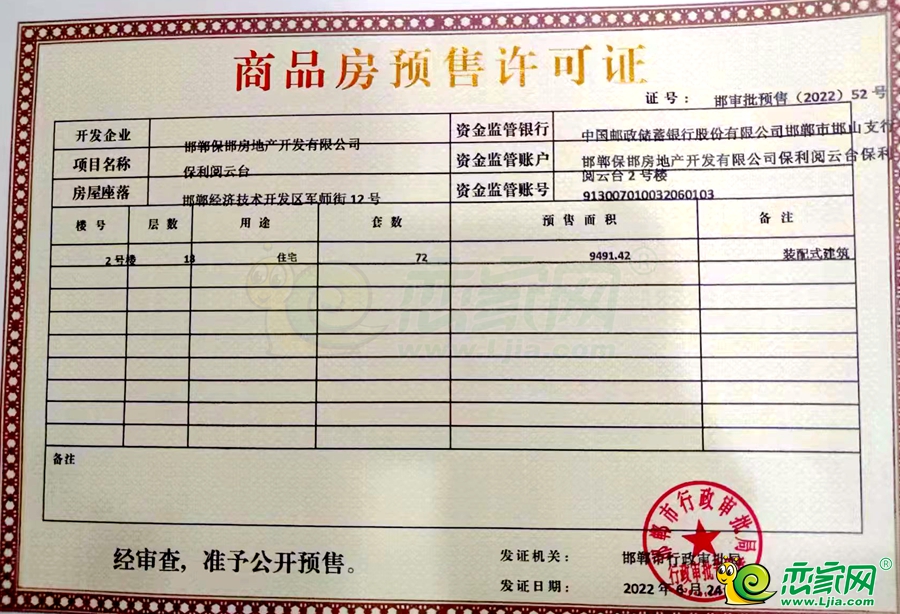 商品房预售许可证
证号： 邯审批预售（2022）52 号
开发企业 邯郸保邯房地产开发有限公司 资金监管银行 中国邮政储蓄银行股份有限公司邯郸市邯山支行
项目名称 保利阅云台 资金监管账户 邯郸保邯房地产开发有限公司保利阅云台保利
阅云台 2 号楼
房屋座落 邯郸经济技术开发区军师街 12 号 资金监管账号 913007010032060103
楼号 层数 用途 套数 预售面积 备注
2 号楼 18 住宅 72 9491.42 装配式建筑
恋家网
www.Ljia.com
备注
经审查，准予公开预售。
发证机关： 邯郸市行政审批局
发证日期： 2022 年 6 月 24
邯郸市行政审批局
行政审批
恋家网®
www.Ljia.com